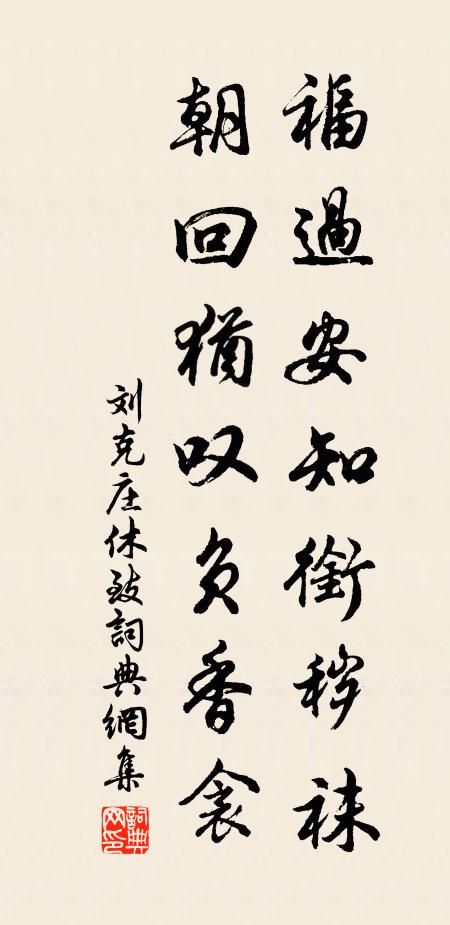 福過安知銜秽袜
朝回猶叹负香衾
刘克庄休致詞典網集
詞典网印